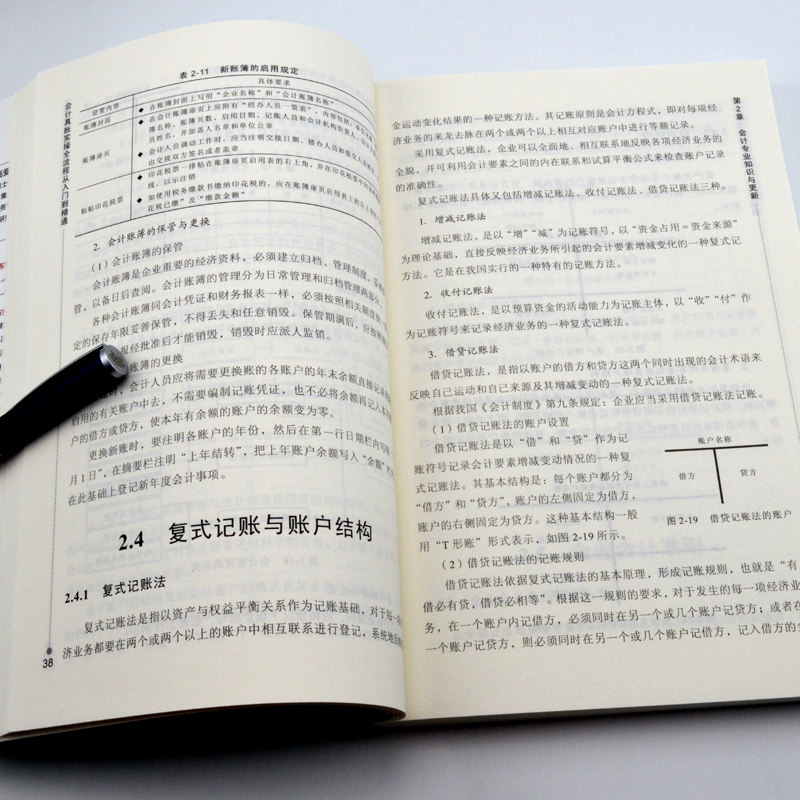 会计真账实操全流程从入门到精通
表 2-11 新账簿的启用规定
设置内容 具体要求
账簿封面 ◆ 在账簿封面上写明“企业名称”和“会计账簿名称”
账簿扉页 ◆ 在会计账簿扉页上应附有“经办人员一览表”，内容包括：单位
簿名称、账簿页数、启用日期、记账人员和会计机构负责人
员姓名，并加盖人名章和单位公章
◆ 会计人员调动工作时，应当注明交接日期、接办人员和监交人员
由交接双方签名或者盖章
粘贴印花税票 ◆ 印花税票一律粘在账簿扉页启用表的右上角，并在印花税票中间
线，以示注销
◆ 如使用税务缴款书缴纳印花税的，应在账簿扉页启用表上的左上
花税已缴”及“缴款金额”
2. 会计账簿的保管与更换
（1）会计账簿的保管
会计账簿是企业重要的经济资料，必须建立归档、管理制度，妥
管，以备日后查阅。会计账簿的管理分为日常管理和归档管理两部分
各种会计账簿同会计凭证和财务报表一样，必须按照相关制度
定的保存年限妥善保管，不得丢失和任意销毁。保管期满后，应按照
报经批准后才能销毁，销毁时应派人监销。
账簿的更换
时，会计人员应将需要更换账的各账户的年末余额直接记录
启用的有关账户中去，不需要编制记账凭证，也不必将余额再记入本
户的借方或贷方，使本年有余额的账户的余额变为零。
更换新账时，要注明各账户的年份，然后在第一行日期栏内写明
月1日”，在摘要栏注明“上年结转”，把上年账户余额写入“余额”栏
在此基础上登记新年度会计事项。
2.4 复式记账与账户结构
2.4.1 复式记账法
复式记账法是指以资产与权益平衡关系作为记账基础，对于每一
济业务都要在两个或两个以上的账户中相互联系进行登记，系统地反映
38
第2章 会计专业知识与更新
金运动变化结果的一种记账方法。其记账原则是会计方程式，即对每项经
济业务的来龙去脉在两个或两个以上相互对应账户中进行等额记录。
采用复式记账法，企业可以全面地、相互联系地反映各项经济业务的
全貌，并可利用会计要素之间的内在联系和试算平衡公式来检查账户记录
的准确性。
复式记账法具体又包括增减记账法、收付记账法、借贷记账法三种。
1. 增减记账法
增减记账法，是以“增”“减”为记账符号，以“资金占用＝资金来源”
为理论基础，直接反映经济业务所引起的会计要素增减变化的一种复式记
方法。它是在我国实行的一种特有的记账方法。
2. 收付记账法
收付记账法，是以预算资金的活动能力为记账主体，以“收”“付”作
为记账符号来记录经济业务的一种复式记账法。
3. 借贷记账法
借贷记账法，是指以账户的借方和贷方这两个同时出现的会计术语来
反映自己运动和自己来源及其增减变动的一种复式记账法。
根据我国《会计制度》第九条规定：企业应当采用借贷记账法记账。
（1）借贷记账法的账户设置
借贷记账法是以“借”和“贷”作为记
账符号记录会计要素增减变动情况的一种复
式记账法。其基本结构是：每个账户都分为
“借方”和“贷方”，账户的左侧固定为借方，
账户的右侧固定为贷方。这种基本结构一般
用“T 形账”形式表示，如图 2-19 所示。
账户名称
借方 贷方
图 2-19 借贷记账法的账户
（2）借贷记账法的记账规则
借贷记账法依据复式记账法的基本原理，形成记账规则，也就是“有
借必有贷，借贷必相等”。根据这一规则的要求，对于发生的每一项经济业
务，在一个账户内记借方，必须同时在另一个或几个账户记贷方；或者在
一个账户记贷方，则必须同时在另一个或几个账户记借方，记入借方的